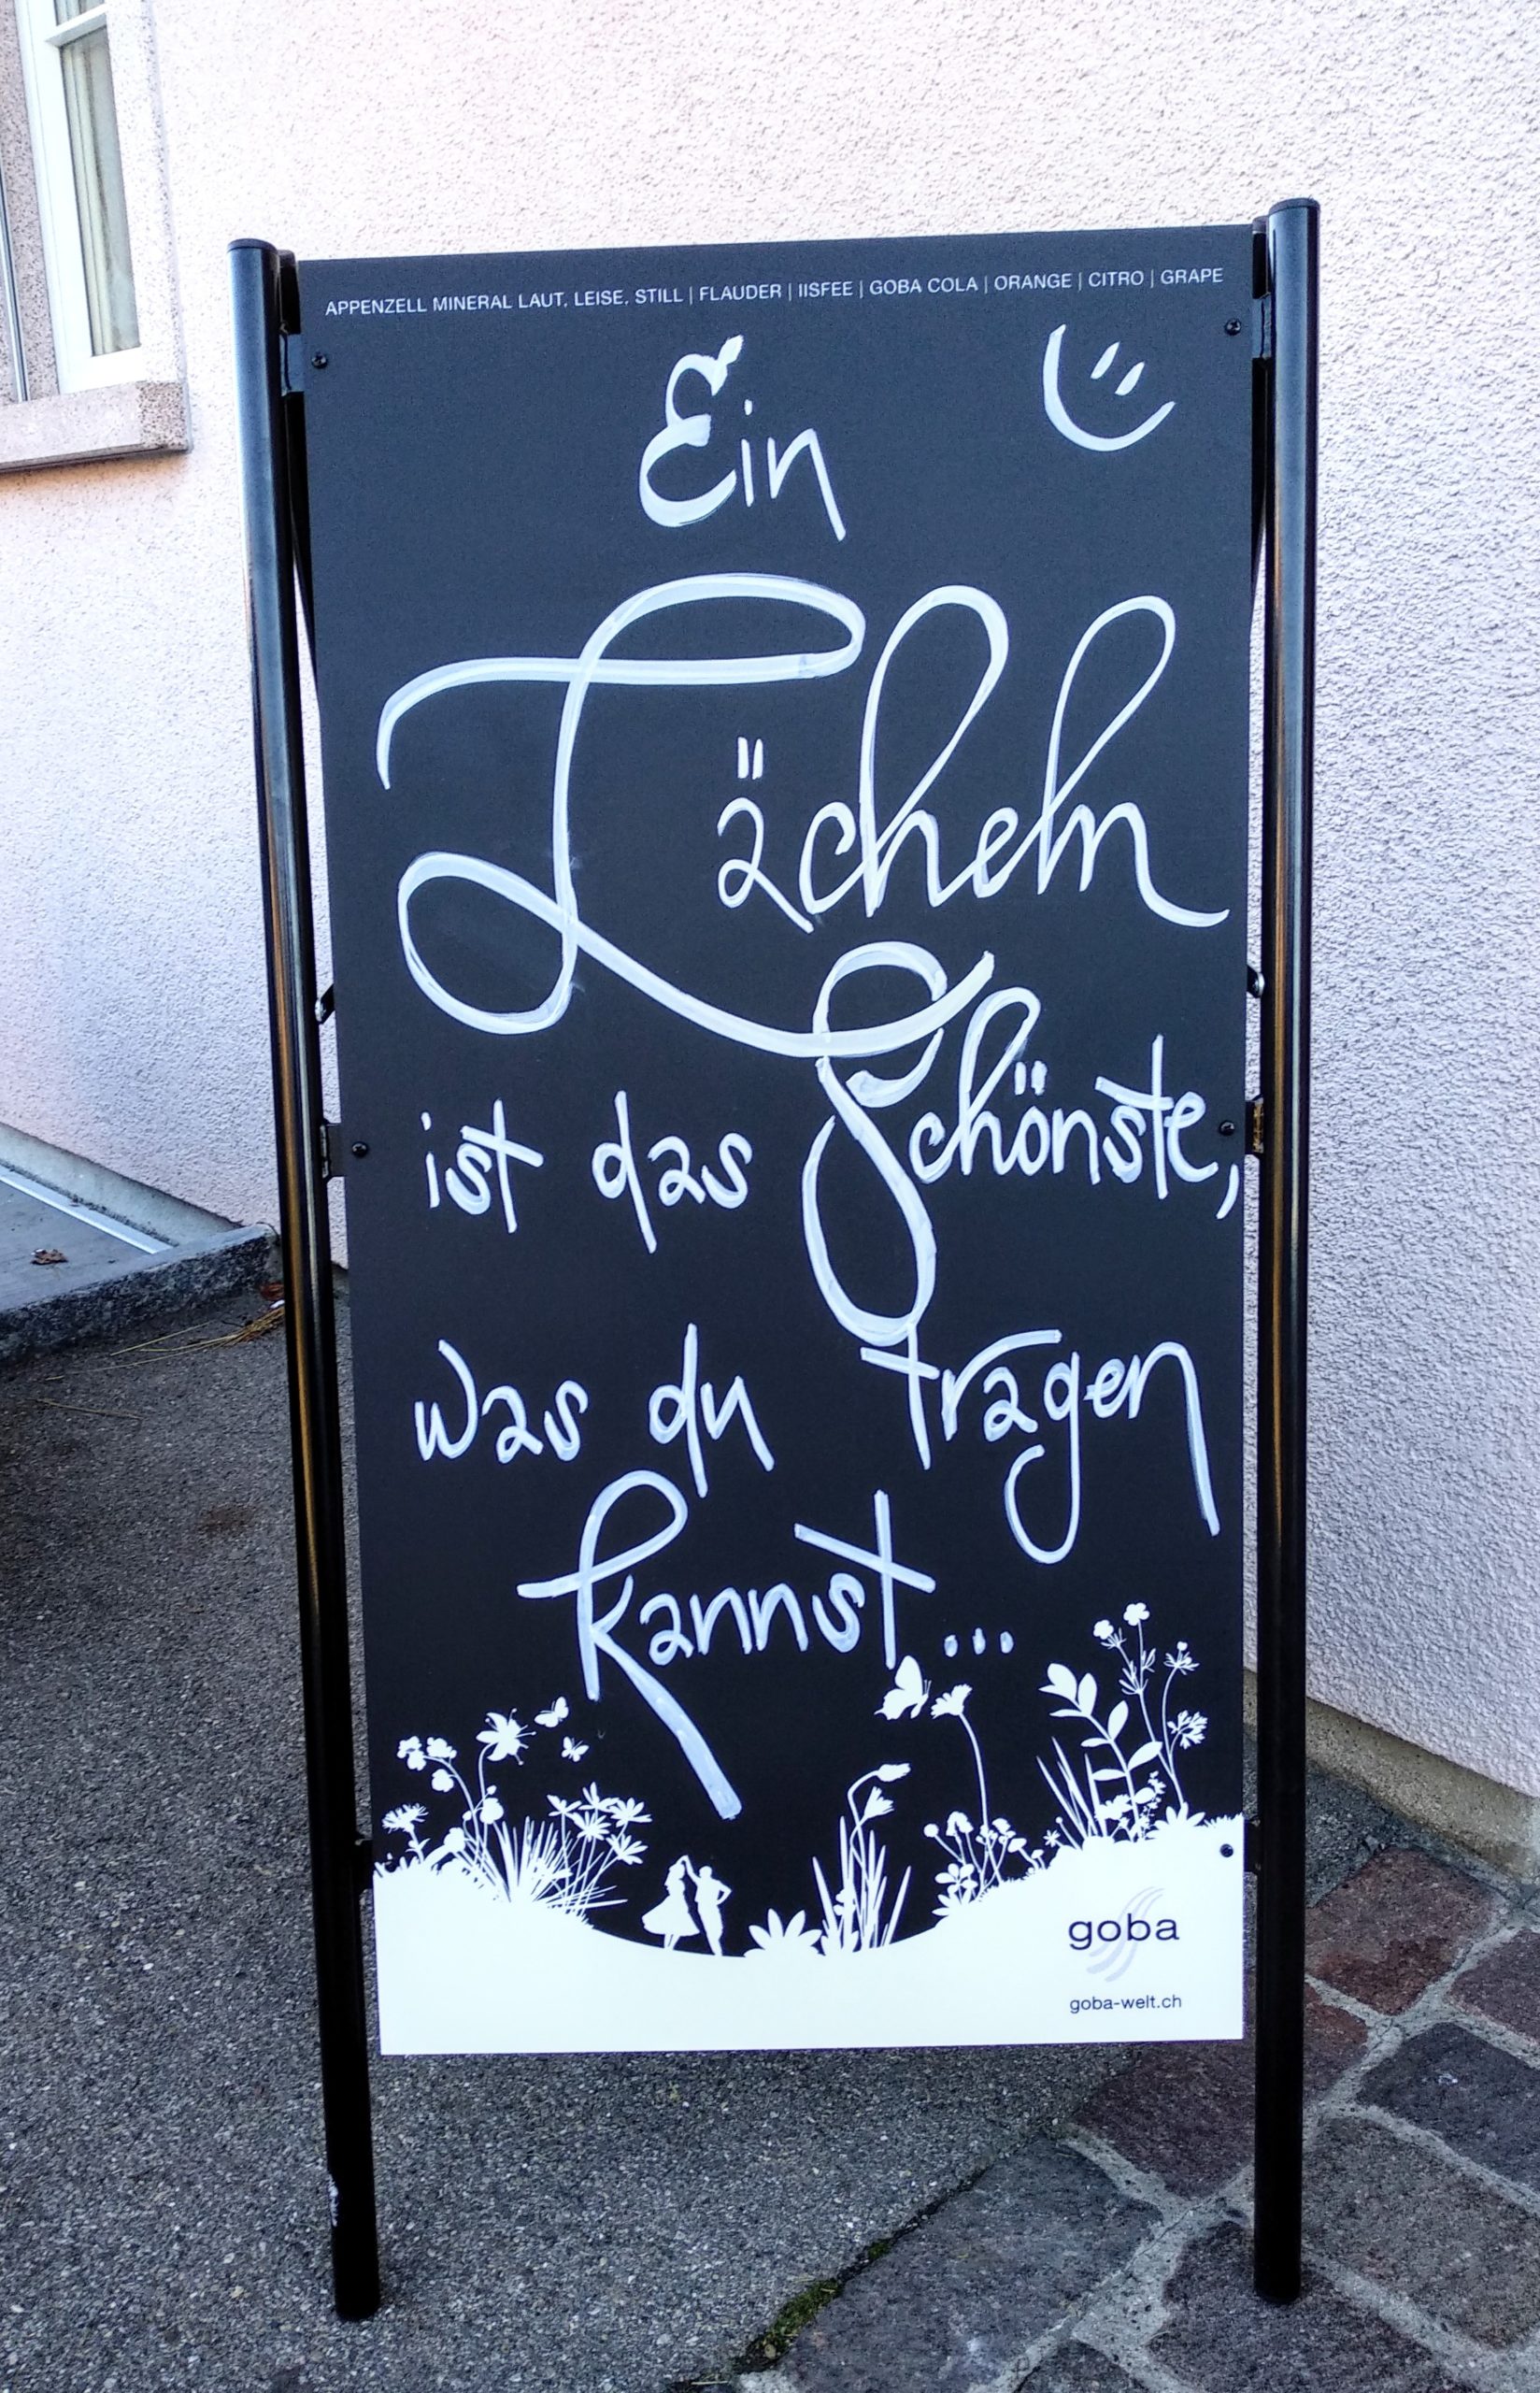 APPENZELL MINERAL LAUT. LEISE. STILL | FLAUDER | IISFEE | GOBA COLA | ORANGE | CITRO | GRAPE
Ein
Lächeln
ist das Schönste,
was du tragen
kannst...
goba
goba-welt.ch